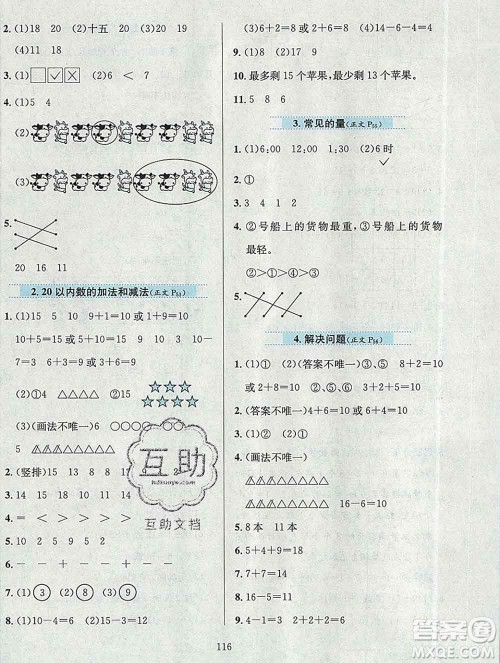 2. (1)18 20 (2)十五 20 20
(4)11 18
3. (1)□ ☑ ☒ (2)6 < 7
4. (1)5 4
(2)
(3)
5.
20 16 11
2. 20 以内数的加法和减法(正文 P₅₁)
1. (1)5 15 10 9+1=10 或 1+9=10
10+5=15 或 9+6=15 10 3 10-
7=3 或 10-3=7
(2)①4 △△△△ ②15 ☆☆☆
☆☆☆☆
(3)(画法不唯一) ○○○○
△△△△△△△△
2. (竖排) 15 13 8 9
3. 14 15 9 18 17
4. = > < > <
5. 10 2 5 9 5 2
6. － － ＋ － ＋ －
7. (1) ③ (2) ⑨ (3) ⑧
8. (1)4+11=15 (2)15-12=3
116
(3)6+2+8=16 (4)14-6-4=4
9. (1)8 (2)17 9
10. 最多剩 15 个苹果，最少剩 13 个苹果。
11. 5 8 6
3. 常见的量(正文 P₅₅)
1. (1)6:00 12:00 1:30 (2)6 时
✓
2. ①
3. 3 4 1 2
4. ②号船上的货物最重，③号船上的货物
最轻。
②>①>④>③
5.
4. 解决问题(正文 P₅₆)
1. (1)① (2)(答案不唯一)③、⑤ 8+2=10
或 2+8=10
2. (答案不唯一)①、③ 6+4=10
3. (1)② (2)①
4. (画法不唯一)
△△△△△△△△
△△△△△△△△ 16-6=10
5. 8 本 11 本
6. 5+4+9=18
7. 2+2+2=6
8. 16-4-3=9
9. 4+3=7 2+2+2=6
互助
互助文档